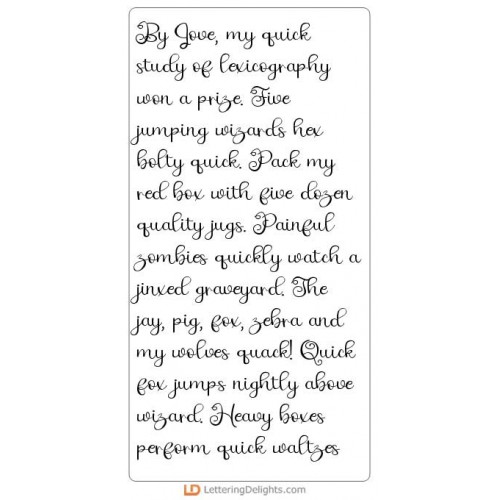 By Jove, my quick
study of lexicography
won a prize. Five
jumping wizards hex
bolty quick. Pack my
red box with five dozen
quality jugs. Painful
zombies quickly watch a
jinxed graveyard. The
jay, pig, fox, zebra and
my wolves quack! Quick
fox jumps nightly above
wizard. Heavy boxes
perform quick waltzes
LD LetteringDelights.com